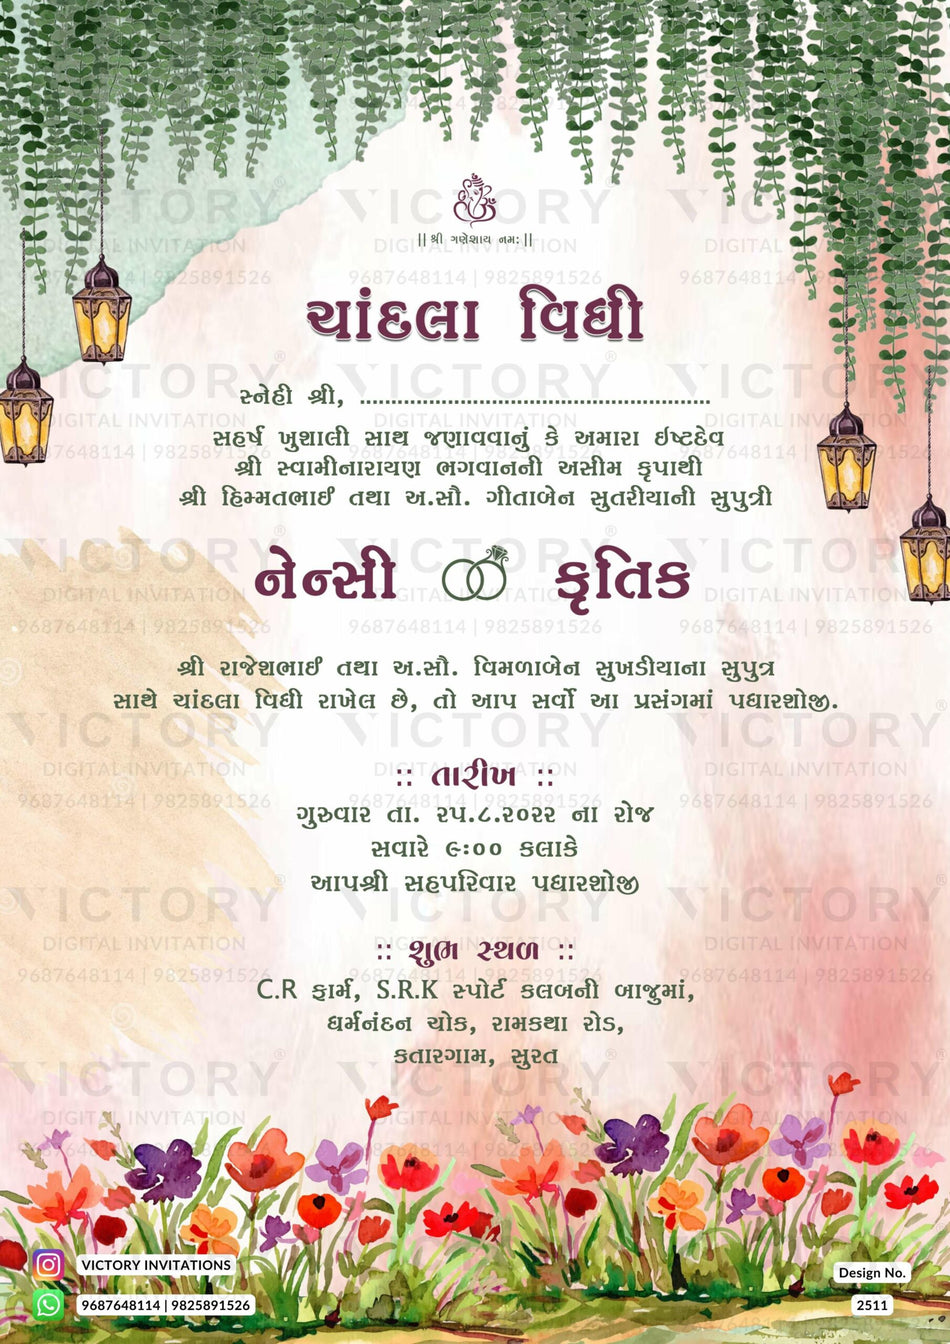 || શ્રી ગણેશાય નમ: ||
ચાંદલા વિધી
સ્નેહી શ્રી, ........................................................
સહર્ષ ખુશાલી સાથ જણાવવાનું કે અમારા ઇષ્ટદેવ
શ્રી સ્વામીનારાયણ ભગવાનની અસીમ કૃપાથી
શ્રી હિમ્મતભાઈ તથા અ.સૌ. ગીતાબેન સુતરીયાની સુપુત્રી
નેન્સી કૃતિક
શ્રી રાજેશભાઈ તથા અ.સૌ. વિમળાબેન સુખડીયાના સુપુત્ર
સાથે ચાંદલા વિધી રાખેલ છે, તો આપ સર્વો આ પ્રસંગમાં પધારશોજી.
:: તારીખ ::
ગુરુવાર તા. ૨૫.૮.૨૦૨૨ ના રોજ
સવારે ૯:૦૦ કલાકે
આપશ્રી સહપરિવાર પધારશોજી
:: શુભ સ્થળ ::
C.R ફાર્મ, S.R.K સ્પોર્ટ કલબની બાજુમાં,
ધર્મનંદન ચોક, રામકથા રોડ,
કતારગામ, સુરત
VICTORY INVITATIONS
9687648114 | 9825891526
Design No.
2511
VICTORY®
DIGITAL INVITATION
9687648114 | 9825891526